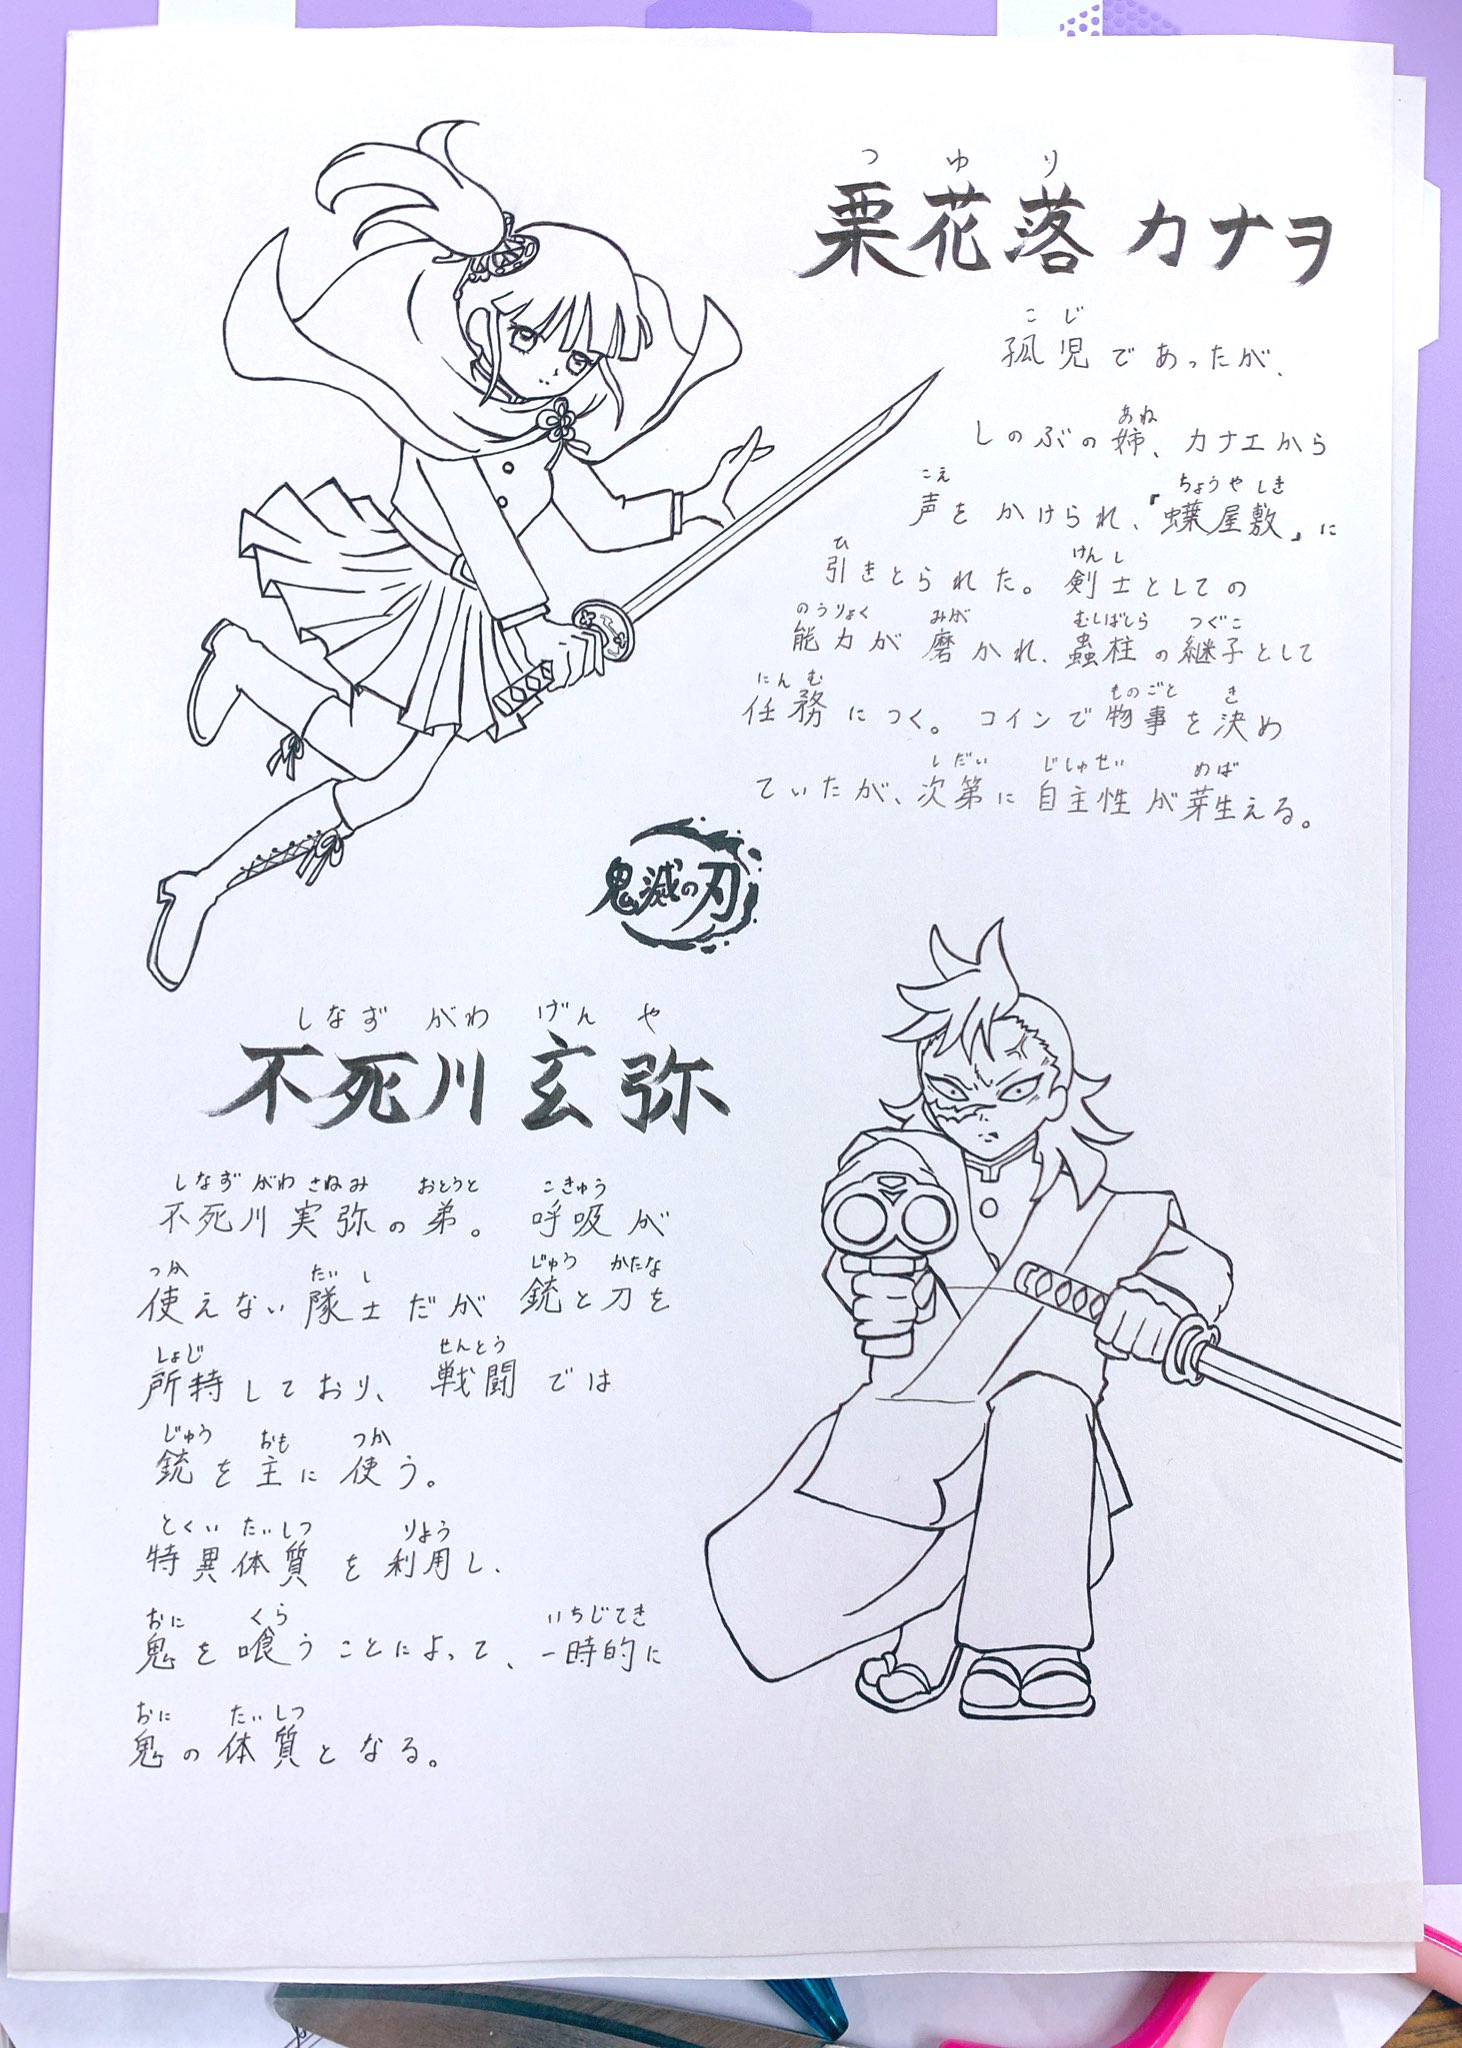 つゆり
栗花落 カナヲ
こじ
孤児であったが、
あね
しのぶの姉、カナエから
こえ ちょうやしき
声をかけられ、『蝶屋敷』に
ひ けんし
引きとられた。剣士としての
のうりょく みが むしばしら つぐこ
能力が磨かれ、蟲柱の継子として
にんむ ものごと き
任務につく。コインで物事を決め
しだい じしゅせい めば
ていたが、次第に自主性が芽生える。
鬼滅の刃
しなずがわ げんや
不死川玄弥
しなずがわさねみ おとうと こきゅう
不死川実弥の弟。呼吸が
つか たいし じゅう かたな
使えない隊士だが銃と刀を
しょじ せんとう
所持しており、戦闘では
じゅう おも つか
銃を主に使う。
とくいたいしつ りよう
特異体質を利用し、
おに くら いちじてき
鬼を喰うことによって、一時的に
おに たいしつ
鬼の体質となる。